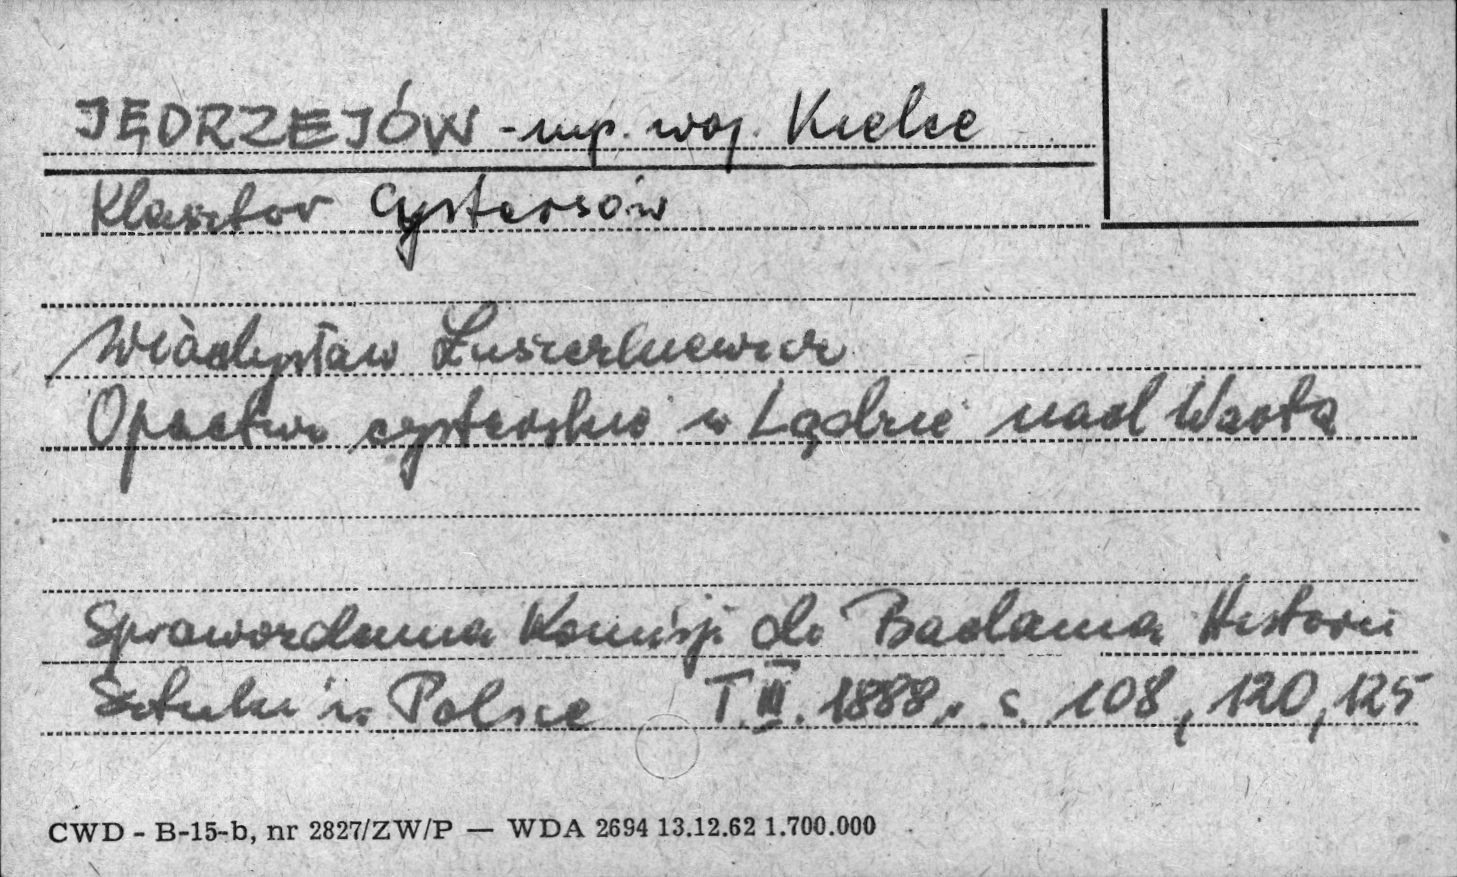 JĘDRZEJÓW - mp. woj. Kielce
Klasztor Cystersów
Władysław Łuszczkiewicz
Opactwo cysterskie w Lądzie nad Wartą
Sprawozdania Komisji do Badania Historii
Sztuki w Polsce T. III. 1888, s. 108, 120, 125
CWD - B-15-b, nr 2827/ZW/P — WDA 2694 13.12.62 1.700.000